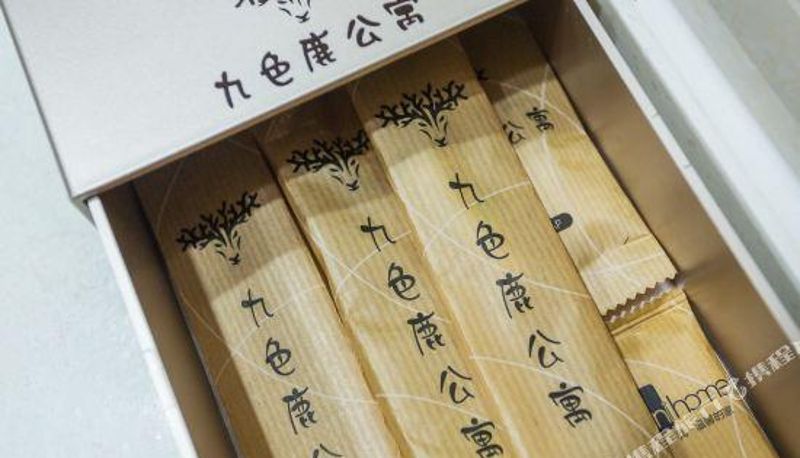 九色鹿公寓
九色鹿公
九色鹿公寓
九色鹿公寓
公寓
home
携程
携程